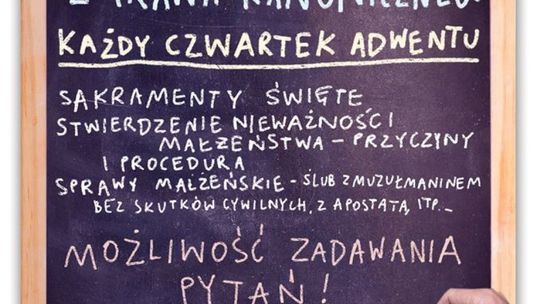 Z PRAWA KANONICZNEGO:
KAŻDY CZWARTEK ADWENTU
SAKRAMENTY ŚWIĘTE
STWIERDZENIE NIEWAŻNOŚCI
MAŁŻEŃSTWA - PRZYCZYNY
I PROCEDURA
SPRAWY MAŁŻEŃSKIE - ŚLUB Z MUZUŁMANINEM
BEZ SKUTKÓW CYWILNYCH, Z APOSTATĄ, ITP...
MOŻLIWOŚĆ ZADAWANIA
PYTAŃ!